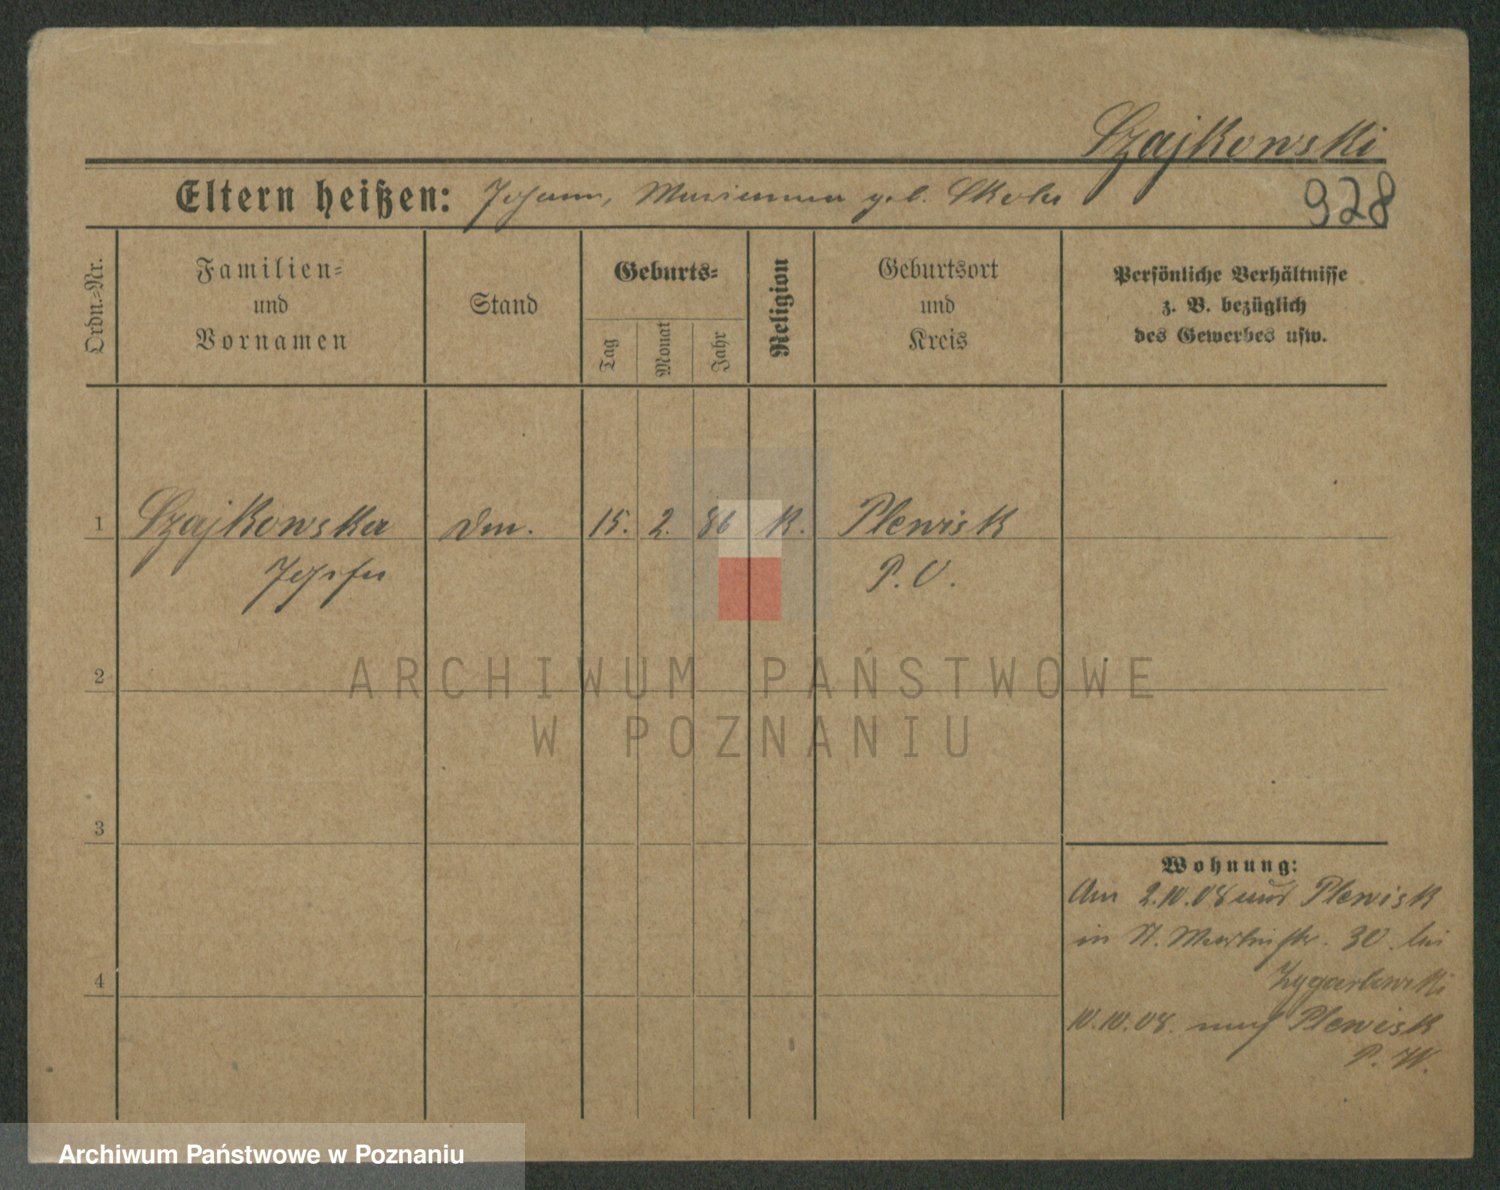 Szajkowski
Eltern heißen: Johann, Marianna geb. Skola
928
Ordn.=Nr.
Familien=
und
Vornamen
Stand
Geburts=
Tag
Monat
Jahr
Religion
Geburtsort
und
Kreis
Persönliche Verhältnisse
z. B. bezüglich
des Gewerbes usw.
1 Szajkowska 15. 2. 86 K. Plewisk
Josefa P. O.
2
ARCHIWUM PAŃSTWOWE
W POZNANIU
3
Wohnung:
Am 2.10.08 aus Plewisk
in St. Martinstr. 30 bei
10.10.08. nach Plewisk
P. W.
4
Archiwum Państwowe w Poznaniu